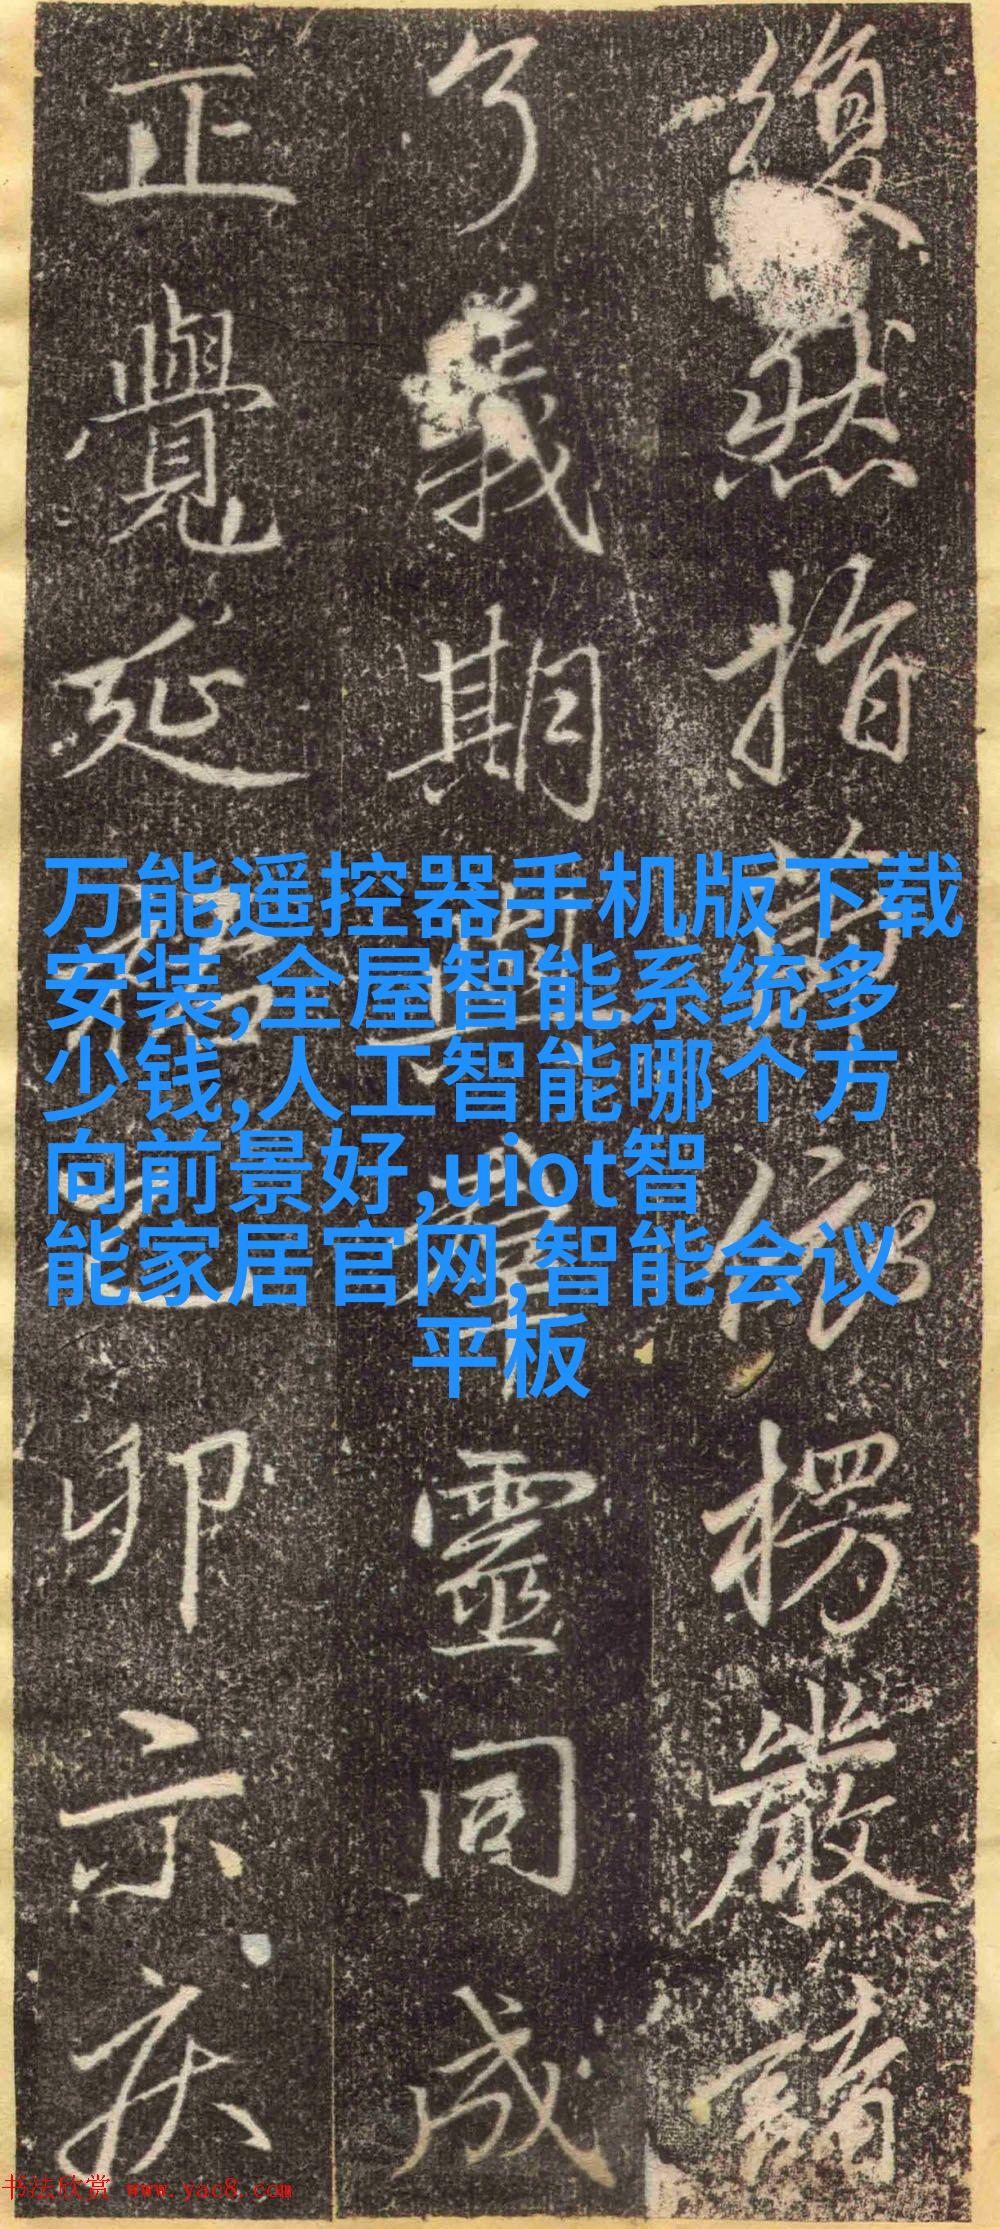 復然指詩依楞嚴誦
了義期與羣靈同成
正覺延福之卯示疾
万能遥控器手机版下载
安装,全屋智能系统多
少钱,人工智能哪个方
向前景好,uiot智
能家居官网,智能会议
平板
书法欣赏 www.yac8.com